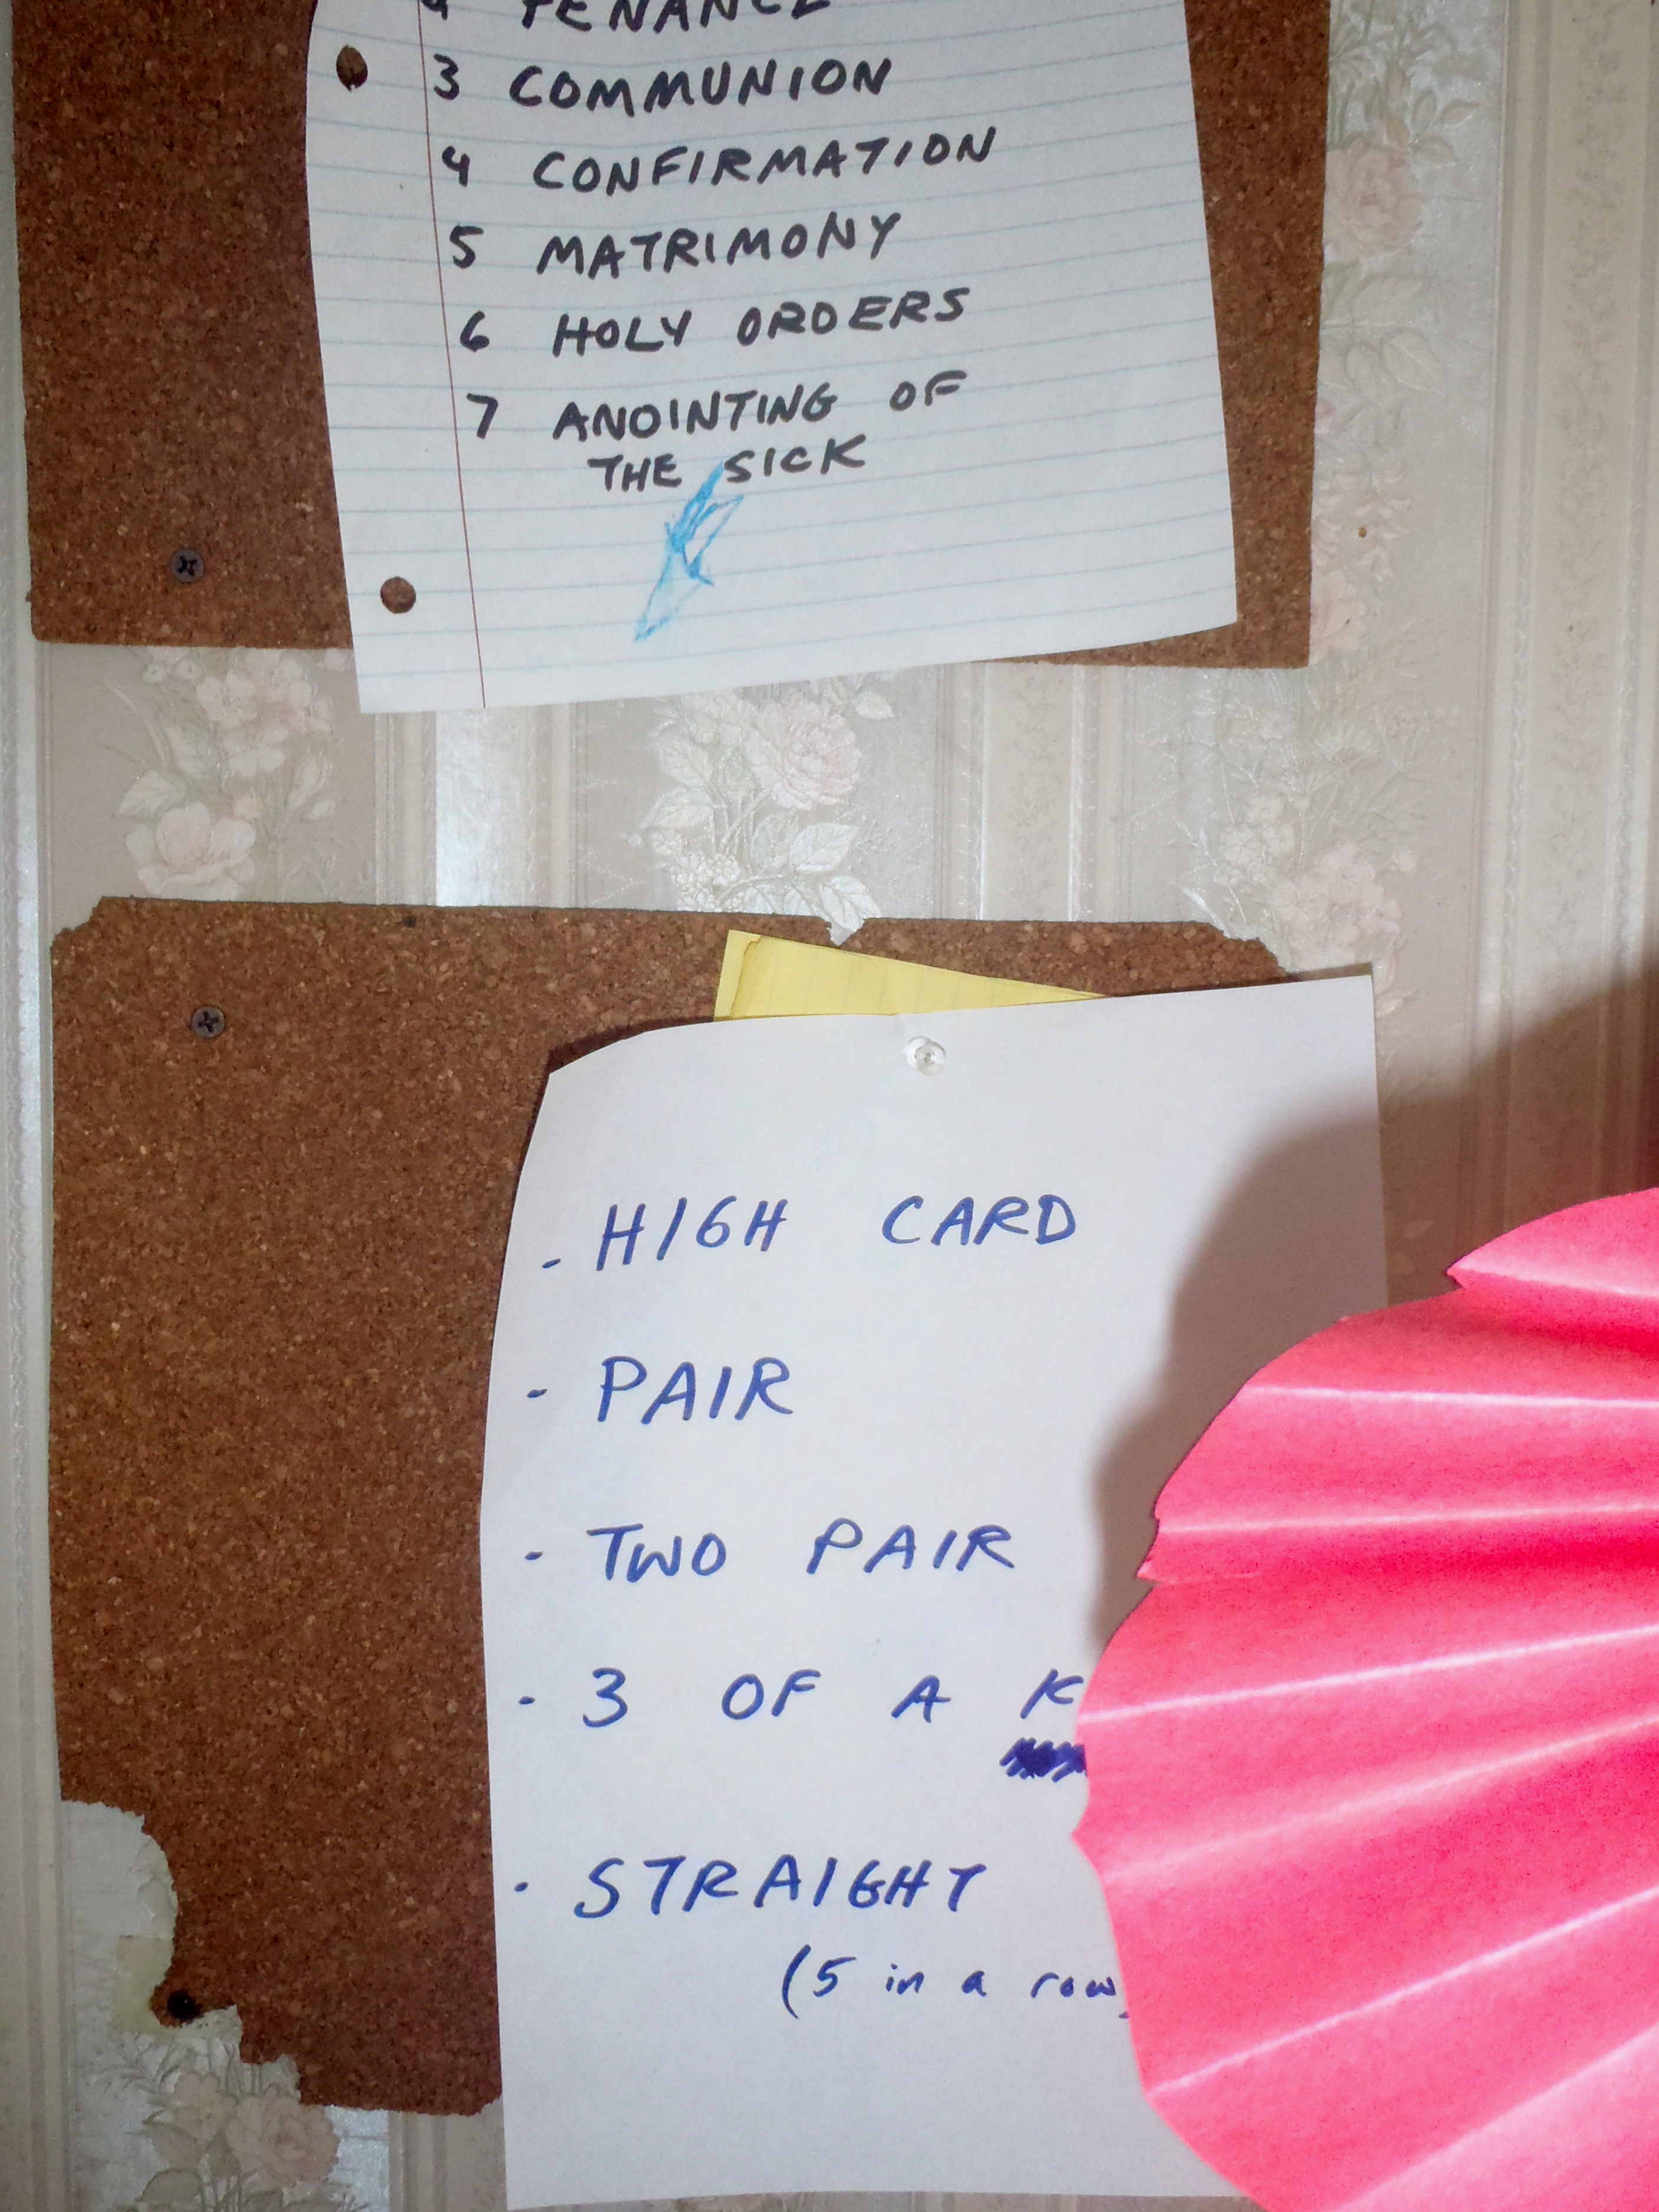 PENANCE
3 COMMUNION
4 CONFIRMATION
5 MATRIMONY
6 HOLY ORDERS
7 ANOINTING OF
THE SICK
- HIGH CARD
- PAIR
- TWO PAIR
- 3 OF A K
- STRAIGHT
(5 in a row)